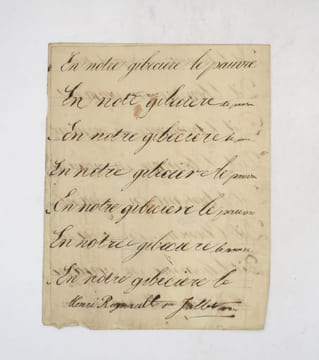 En notre gibeciere le pauvre
En notre gibeciere le pauvre
En notre gibeciere le
En notre gibeciere le pauvre
En notre gibeciere le pauvre
En notre gibeciere le
En notre gibeciere le
Henri Regnault